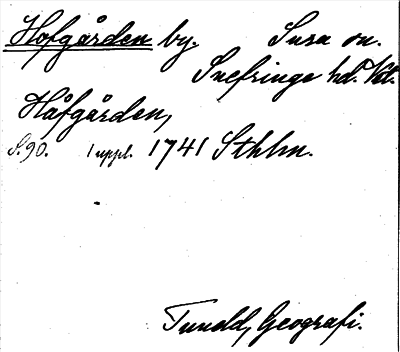 Hofgården by. Sura sn.
Snefringe hd. Vstm.
Håfgården,
S. 90. 1 uppl. 1741 Sthlm.
Tuneld, Geografi.